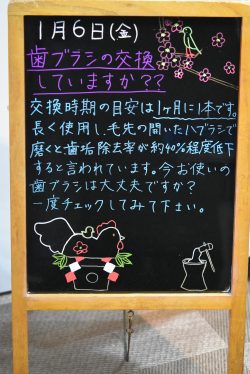 1月6日(金)
歯ブラシの交換
していますか??
交換時期の目安は1ヶ月に1本です。
長く使用し、毛先の開いたハブラシで
磨くと歯垢除去率が約40%程度低下
すると言われています。今お使いの
歯ブラシは大丈夫ですか?
一度チェックしてみて下さい。